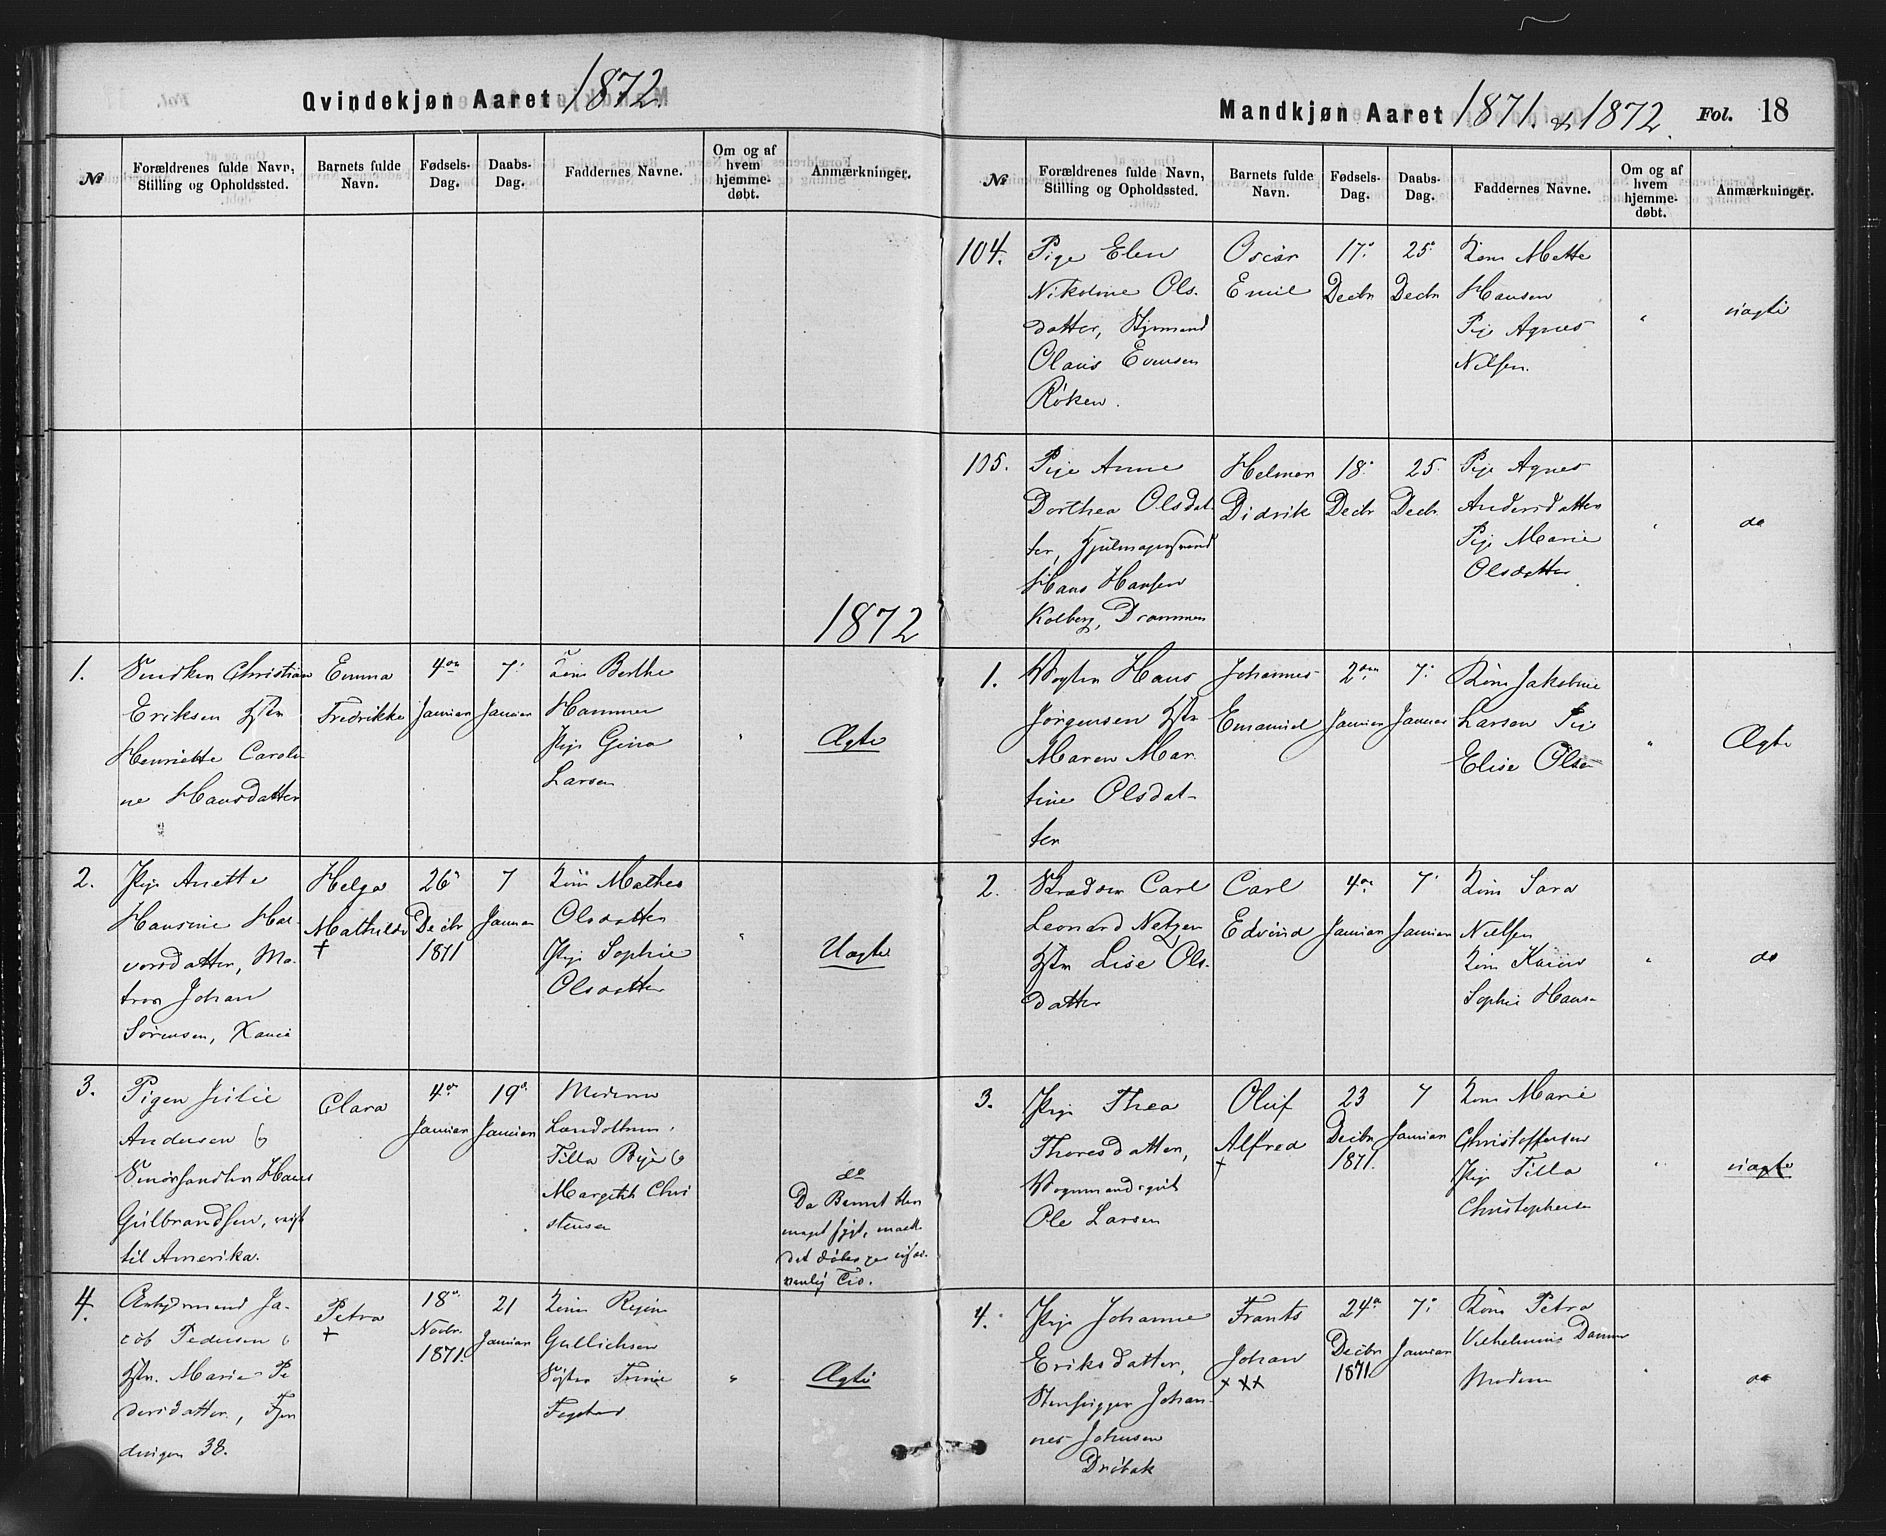 Qvindekjøn Aaret 1872.
№
Forældrenes fulde Navn, Stilling og Opholdssted.
Barnets fulde Navn.
Fødsels-Dag.
Daabs-Dag.
Faddernes Navne.
Om og af hvem hjemmedøbt.
Anmærkninger.
1872
1.
Christian
Eriksen Hstr
Henriette Caroli
ne Hansdatter
Emma
Fredrikke
4de
Januar
7.
Januar
Berthe
Hammer
Pige Gina
Larsen
"
Ægte
2.
Pige Anette
Hansine Hal
vorsdatter, Ma
tros Johan
Sørensen,
Helga
Mathilde
+
26.
Decbr
1871
7
Januar
Kone Mathea
Olsdatter
Pige Sophie
Olsdatter
"
Uægte
3.
Pigen Julie
Andersen og
Hans
Gulbrandsen, reist
til Amerika.
Clara
4de
Januar
19.
Januar
Moderen
Tilla Bye og
Margith Chri
stensen
do
Da Barnet blev
meget sygt,
4.
Ja-
cob Pedersen
Hstr. Marie Pe
dersdatter,
38.
Petra
+
18.
Novbr.
1871.
21
Januar
Kone
Gullichsen
Søster Trine
"
Ægte
Mandkjøn Aaret 1871. & 1872. Fol. 18
№
Forældrenes fulde Navn, Stilling og Opholdssted.
Barnets fulde Navn.
Fødsels-Dag.
Daabs-Dag.
Faddernes Navne.
Om og af hvem hjemmedøbt.
Anmærkninger.
104.
Pige Elen
Nikoline Ols.
datter, Styrmand
Olaus Evensen
Røken.
Oscar
Emil
17.
Decbr
25.
Decbr
Kone Mette
Hansen
Pige Agnes
Nilsen.
"
uægte
105.
Pige Anne
Dorthea Olsdat
ter, Hjulmagersvend
Hans Hansen
Kolberg, Drammen
Helmer
Didrik
18.
Decbr
25.
Decbr
Pige Agnes
Andersdatter
Pige Marie
Olsdatter
"
do
1.
Hans
Jørgensen Hstr
Maren Mar
tine Olsdat-
ter
Johannes
Emanuel
2den
Januar
7.
Januar
Kone Jakobine
Larsen Pige
Elise Olsen
"
Ægte
2.
Carl
Leonard
Hstr Lise Ols-
datter
Carl
Edvind
4de
Januar
7.
Januar
Kone Sara
Nielsen
Kone Karen
Sophie Hans-
"
do
3.
Pige Thea
Thoresdatter,
Vognmandsgut
Ole Larsen
Oluf
Alfred
+
23
Decbr
1871.
7
Januar
Kone Marie
Christoffersen
Pige Tilla
Christophersen
"
uægte
4.
Pige Johanne
Eriksdatter,
Stenhugger Johan-
nes Johnsen
Drøbak
Frants
Johan
+ ++
24de
Decbr
1871.
7.
Januar
Kone Petra
Vilhelmine Dammen
Moderen
"
do